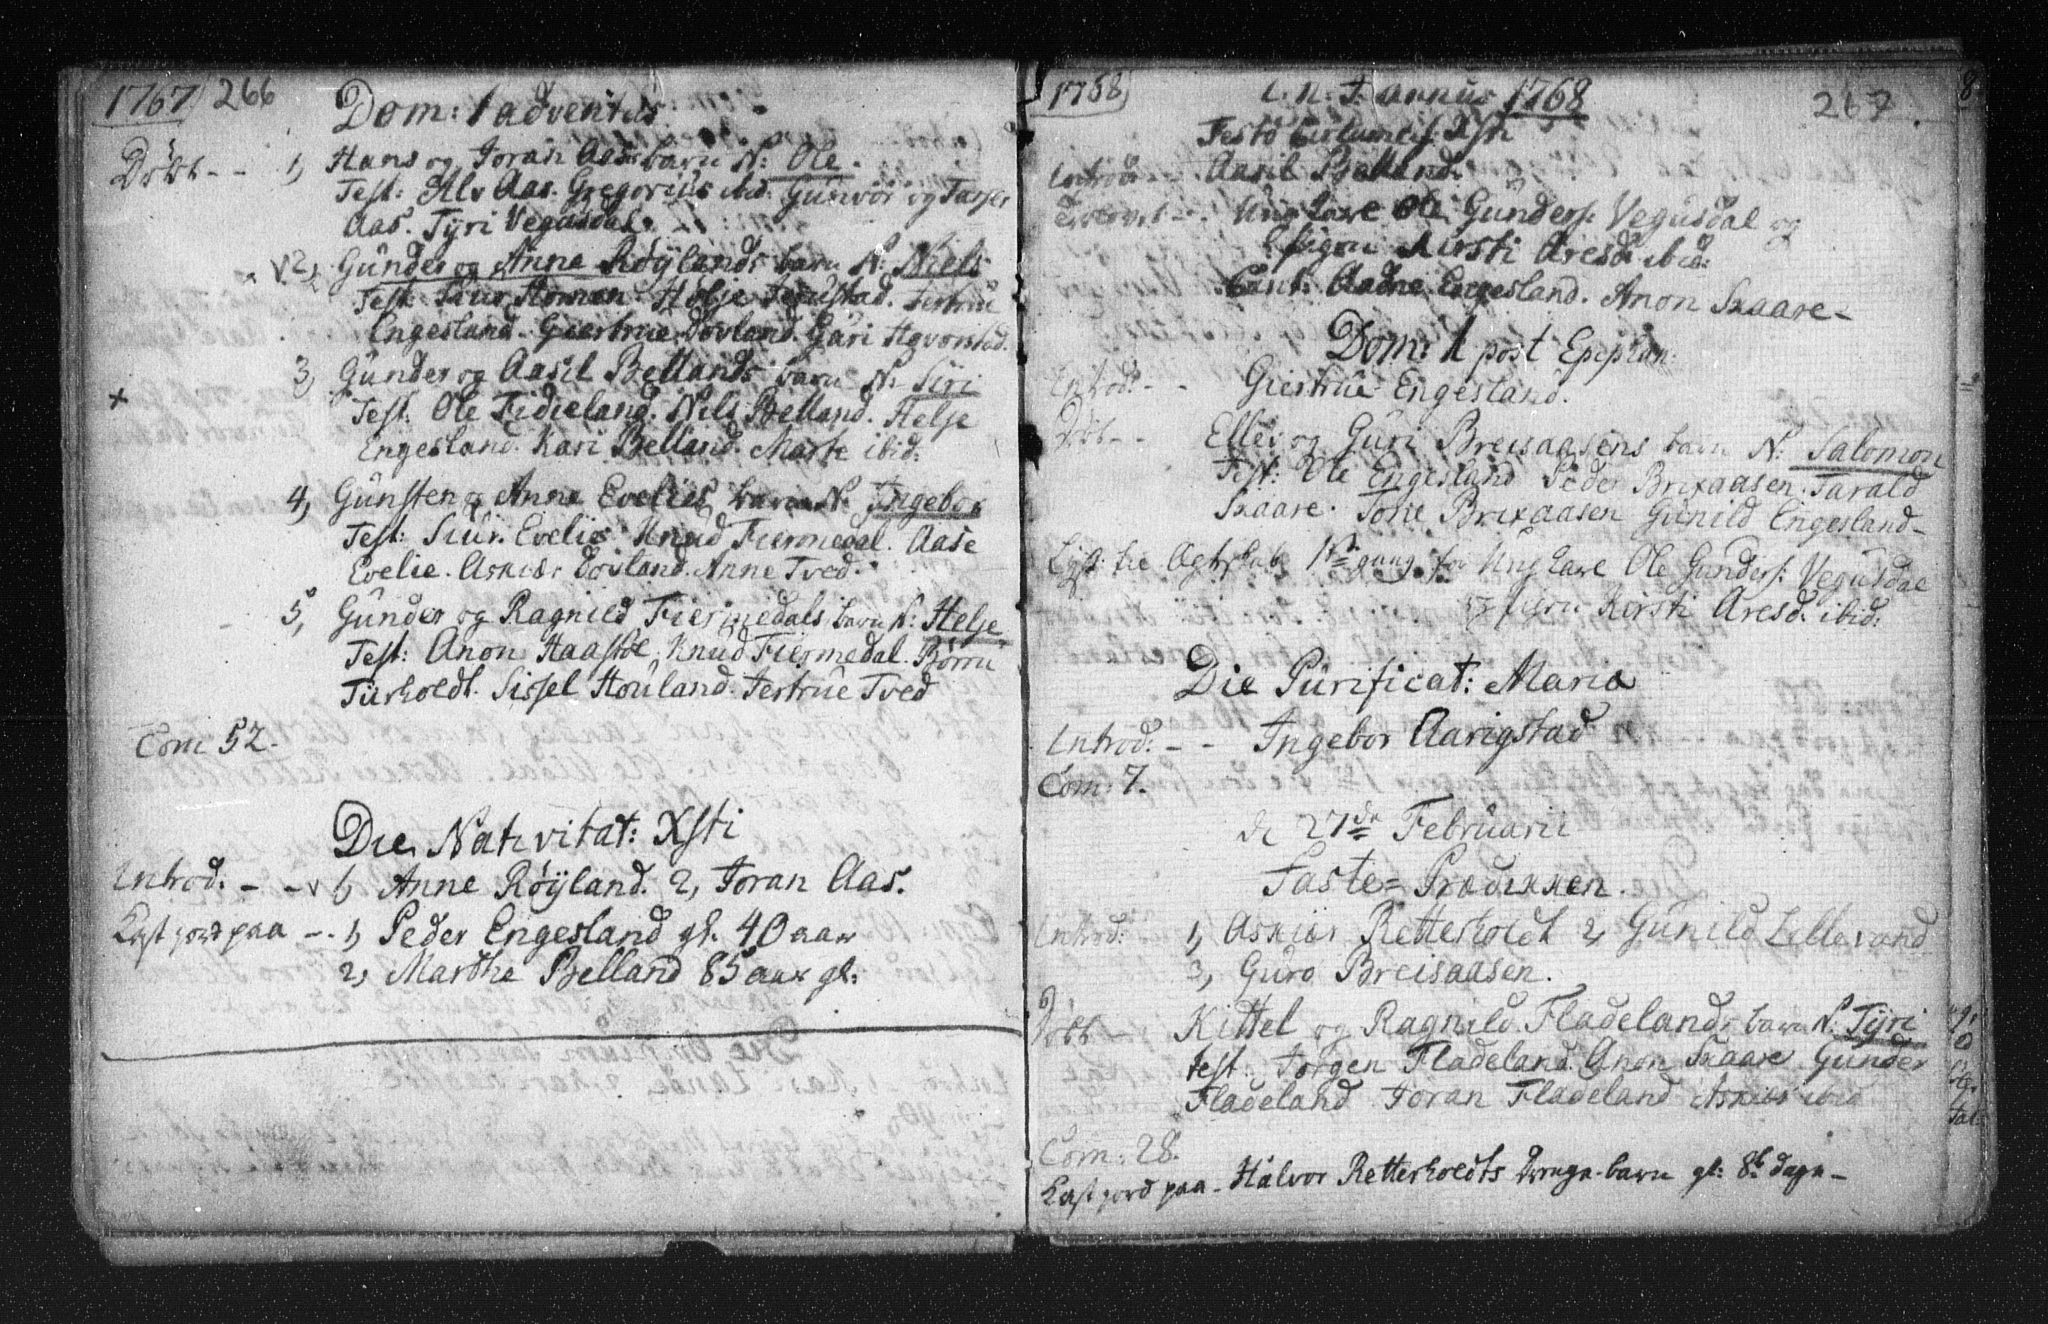 1767 266
Dom: 1 adventus
Døbt - - 1, Hans og Joran Aas barn N: Ole.
Test: Alv Aas. Gregorius ibid. Gunvor og
Aas. Tÿri Vegusdal.
2, Gunder og Anne Røÿlands barn N: Niels
Test: Homen. Helje
Engesland. Giertrue Dovland. Gúri
3, Gúnder og Aasil Bellands barn N: Siri
Test: Ole Fidieland. Nils Belland. Helje
Engesland. Kari Belland. Marte ibid:
4, Gúnsten og Anne Evelies barn N: Ingebor
Test: Siúr Evelie Knud Fiermedal. Aase
Evelie. Askier Dovland. Anne Tved.
5, Gúnder og Ragnild Fiermedals barn N: Helje
Test: Anon Haaståe. Knud Fiermedal. Børrn
Túrholdt. Sissel Houland. Jertrue Tved
Com 52.
Die Nativitat: Xsti
Introd: - - 1, Anne Røÿland. 2, Joran Aas.
Kast jord paa - . 1, Peder Engesland gl. 40 aar
2, Marthe Belland 85 aar gl:
1768 I. N. J. annus 1768 267
Festo Circumcis. Xsti
Introd: Aasil Belland.
Trolovet - . Ung Karl Ole Gunders: Vegusdal og
Pigen Kirsti Aresd: ibid:
Caut: Aadne Engesland. Anon Skaare -
Dom: 1 post Epiphan:
Introd: - - Giertrue Engesland.
Døb - - Ellev og Guri Breisaasens barn N: Salomon
Test: Ole Engesland Peder Brixaasen. Tarald
Skaare. Tone Brixaasen Gunild Engesland -
Lyst til Ægteskab 1ste gang for Ung Karl Ole Gunders: Vegusdal
og Pigen Kirsti Aresd: ibid:
Die Purificat: Mariæ
Introd: - - Ingebor Aarigstad
Com: 7.
de 27de Februarii
Faste = Prædikken.
Introd: 1, Askier Retterholdt 2, Gunild Lillevand
3, Guro Breisaasen.
Døbt Kittel og Ragnild Fladelands barn N: Tÿri
Test: Jørgen Fladeland Anon Skaare. Gunder
Fladeland Joran Fladeland Askier ibid
Com: 28.
Kast jord paa - Halvor Retterholdts Drenge-barn gl: 8te dage -